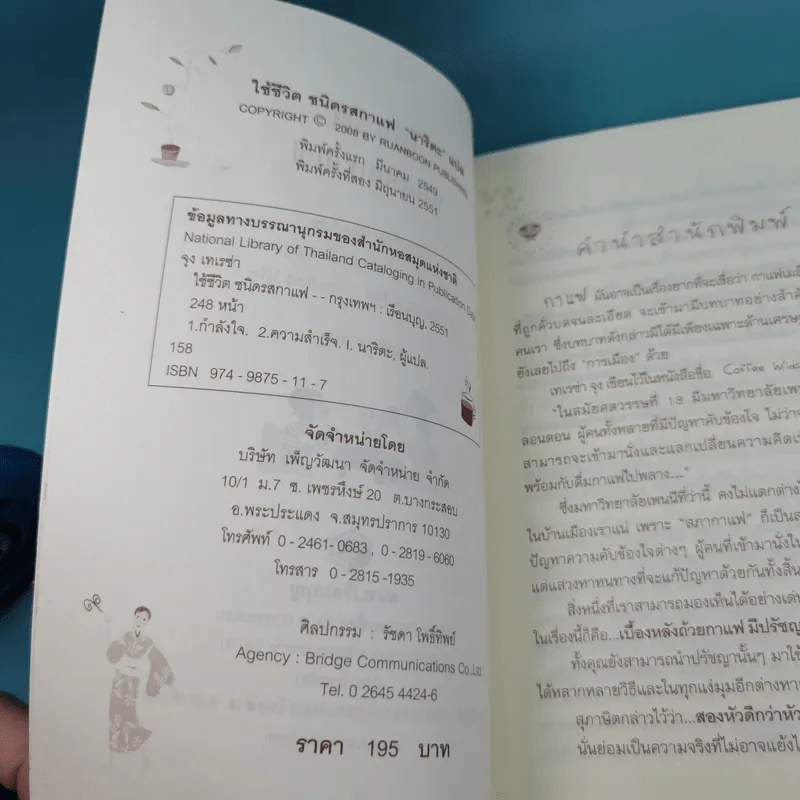 ใช้ชีวิต ชนิดรสกาแฟ "นาริตะ" แปล
COPYRIGHT © 2008 BY RUANBOON PUBLISHING
พิมพ์ครั้งแรก มีนาคม 2549
พิมพ์ครั้งที่สอง มิถุนายน 2551
ข้อมูลทางบรรณานุกรมของสำนักหอสมุดแห่งชาติ
National Library of Thailand Cataloging in Publication Data
จุง เทเรซ่า
ใช้ชีวิต ชนิดรสกาแฟ - - กรุงเทพฯ : เรือนบุญ, 2551
248 หน้า
1.กำลังใจ. 2.ความสำเร็จ. I. นาริตะ, ผู้แปล.
158
ISBN 974-9875-11-7
จัดจำหน่ายโดย
บริษัท เพ็ญวัฒนา จัดจำหน่าย จำกัด
10/1 ม.7 ซ. เพชรหึงษ์ 20 ต.บางกระสอบ
อ.พระประแดง จ.สมุทรปราการ 10130
โทรศัพท์ 0-2461-0683, 0-2819-6060
โทรสาร 0-2815-1935
ศิลปกรรม : รัชดา โพธิ์ทิพย์
Agency : Bridge Communications Co.,Ltd
Tel. 0 2645 4424-6
ราคา 195 บาท
คำนำสำนักพิมพ์
กาแฟ มันอาจเป็นเรื่องยากที่จะเชื่อว่า
ที่ถูกคั่วบดจนละเอียด จะเข้ามามีบทบาทอย่าง
คนเรา ซึ่งบทบาทดังกล่าวมิได้มีเพียงเฉพาะด้าน
ยังเลยไปถึง "การเมือง" ด้วย
เทเรซ่า จุง เขียนไว้ในหนังสือชื่อ Coffee
"ในสมัยศตวรรษที่ 18 มีมหาวิทยาลัย
ลอนดอน ผู้คนทั้งหลายที่มีปัญหาคับข้องใจ ไม่ว่า
สามารถจะเข้ามานั่งและแลกเปลี่ยนความคิด
พร้อมกับดื่มกาแฟไปพลาง..."
ซึ่งมหาวิทยาลัยเพนนีที่ว่านี้ คงไม่แตกต่าง
ในบ้านเมืองเราแน่ เพราะ "สภากาแฟ" ก็เป็น
ปัญหาความคับข้องใจต่างๆ ผู้คนที่เข้ามานั่งใน
แต่แสวงหาหนทางที่จะแก้ปัญหาด้วยกันทั้งสิ้น
สิ่งหนึ่งที่เราสามารถมองเห็นได้อย่าง
ในเรื่องนี้ก็คือ...เบื้องหลังถ้วยกาแฟ มีปรัชญ
ทั้งคุณยังสามารถนำปรัชญานั้นๆ มาใช้
ได้หลากหลายวิธีและในทุกแง่มุมอีกต่างหาก
สุภาษิตกล่าวไว้ว่า...สองหัวดีกว่าหัว
นั่นย่อมเป็นความจริงที่ไม่อาจแย้ง